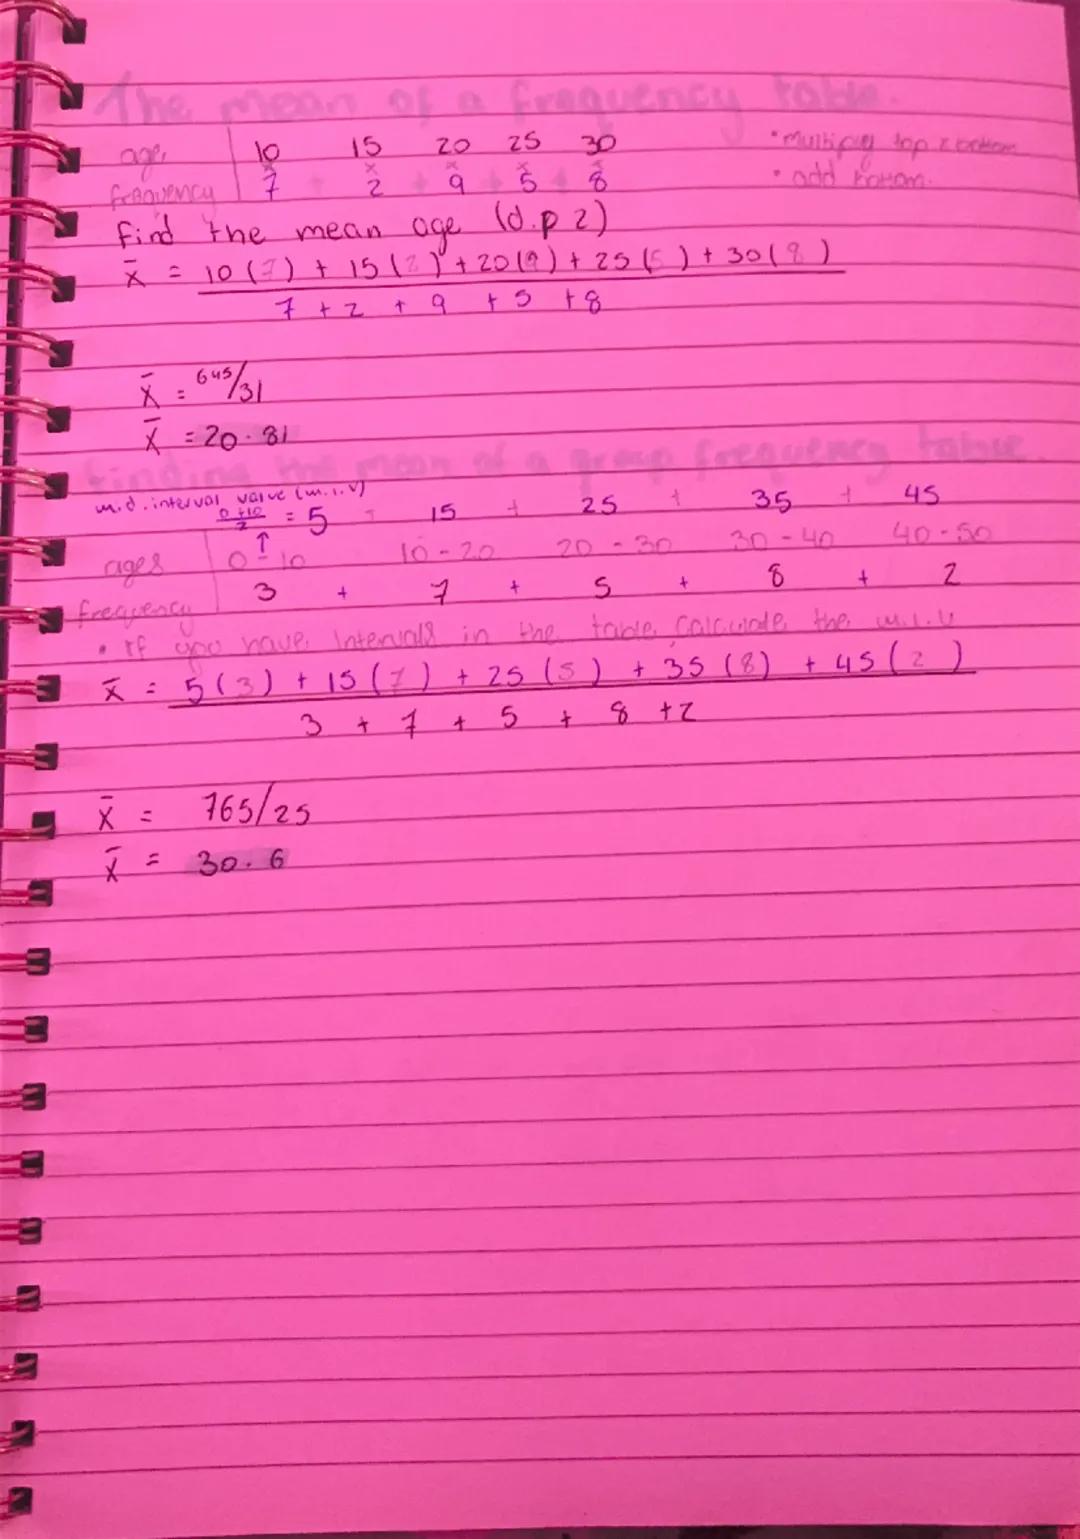 The mean of a frequency table.
age, 10 15 20 25 30 • Multiply top & bottom
x x x x x
frequency 7 + 2 + 9 + 5 + 8 • add bottom.
find the mean age (d.p 2)
x̄ = 10 (7) + 15 (2) + 20 (9) + 25 (5) + 30 (8)
7 + 2 + 9 + 5 + 8
x̄ = 645/31
x̄ = 20.81
finding the mean of a group frequency table.
mid.interval value (m.i.v)
0+10/2 = 5 + 15 + 25 + 35 + 45
↑
ages 0-10 10-20 20-30 30-40 40-50
frequency 3 + 7 + 5 + 8 + 2
• If you have intervals in the table, calculate the m.i.v
x̄ = 5(3) + 15(7) + 25(5) + 35(8) + 45(2)
3 + 7 + 5 + 8 +2
x̄ = 765/25
x̄ = 30.6